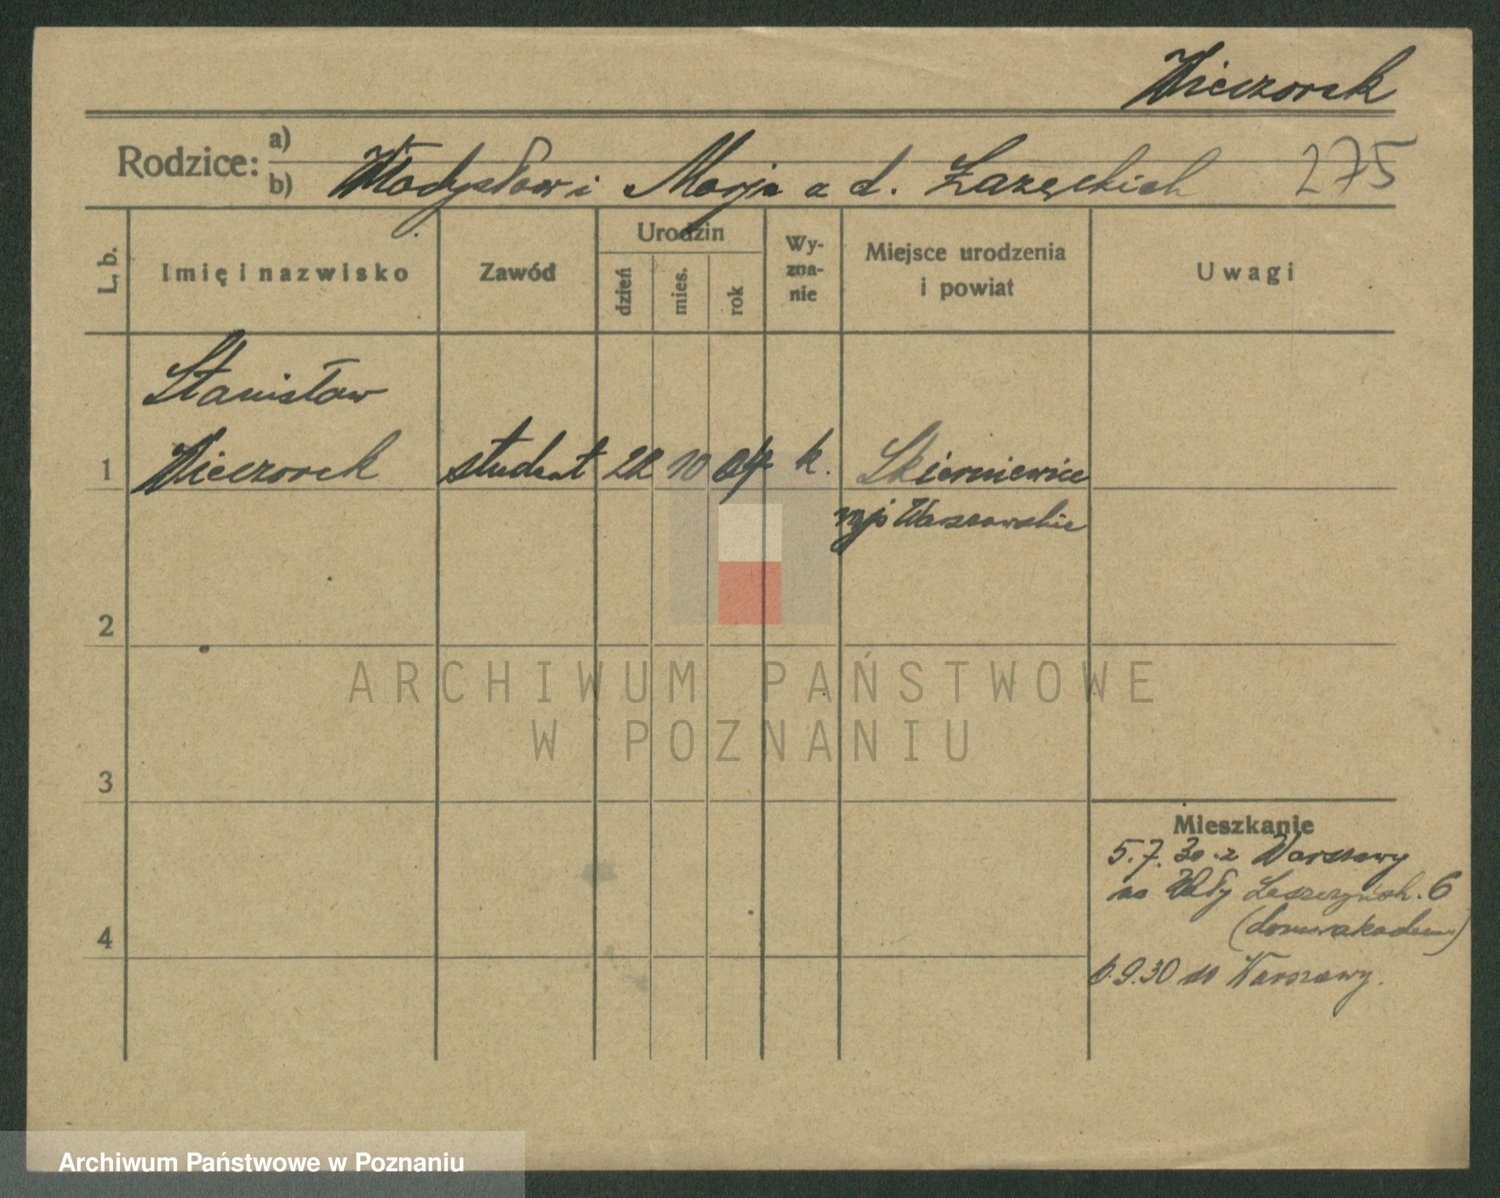 Wieczorek
Rodzice: a)
b) Władysław i Marja z d. Łazęckich 275
L. b.
Imię i nazwisko
Zawód
Urodzin
dzień
mies.
rok
Wy-
zna-
nie
Miejsce urodzenia
i powiat
Uwagi
Stanisław
1 Wieczorek student 10 04 k. Skierniewice
Warszawskie
2
3
4
Mieszkanie
5.7.30 z Warszawy
na Wały Leszczyńsk. 6
6.9.30 do Warszawy.
ARCHIWUM PAŃSTWOWE
W POZNANIU
Archiwum Państwowe w Poznaniu